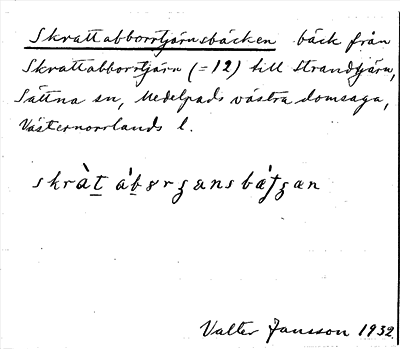 Skrattabborrtjärnsbäcken bäck från
Skrattabborrtjärn (=12) till Strandtjärn,
Sättna sn, Medelpads västra domsaga,
Västernorrlands l.
Valter Jansson 1932.